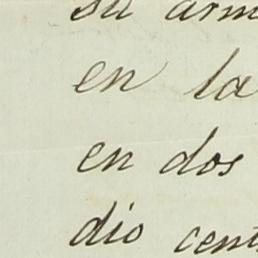 su arm
en la
en dos
dio cent